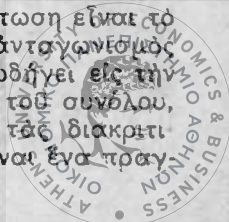 τωση εἶναι τὸ
ἀνταγωνισμὸς
ὁδήγει εἰς τὴν
τοῦ συνόλου,
τὰς διακριτι
ναι ἕνα πραγ
ATHENS UNIVERSITY OF ECONOMICS & BUSINESS
ΟΙΚΟΝΟΜΙΚΟ ΠΑΝΕΠΙΣΤΗΜΙΟ ΑΘΗΝΩΝ